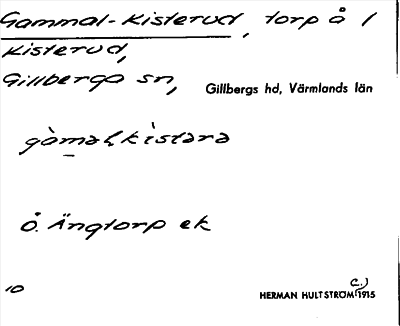 Gammal-Kisterud, torp å 1
Kisterud,
Gillberga sn,
Gillbergs hd, Värmlands län
gàmaļkìstəra
Ö. Ängtorp ek
10
HERMAN HULTSTRÖM (c.) 1915